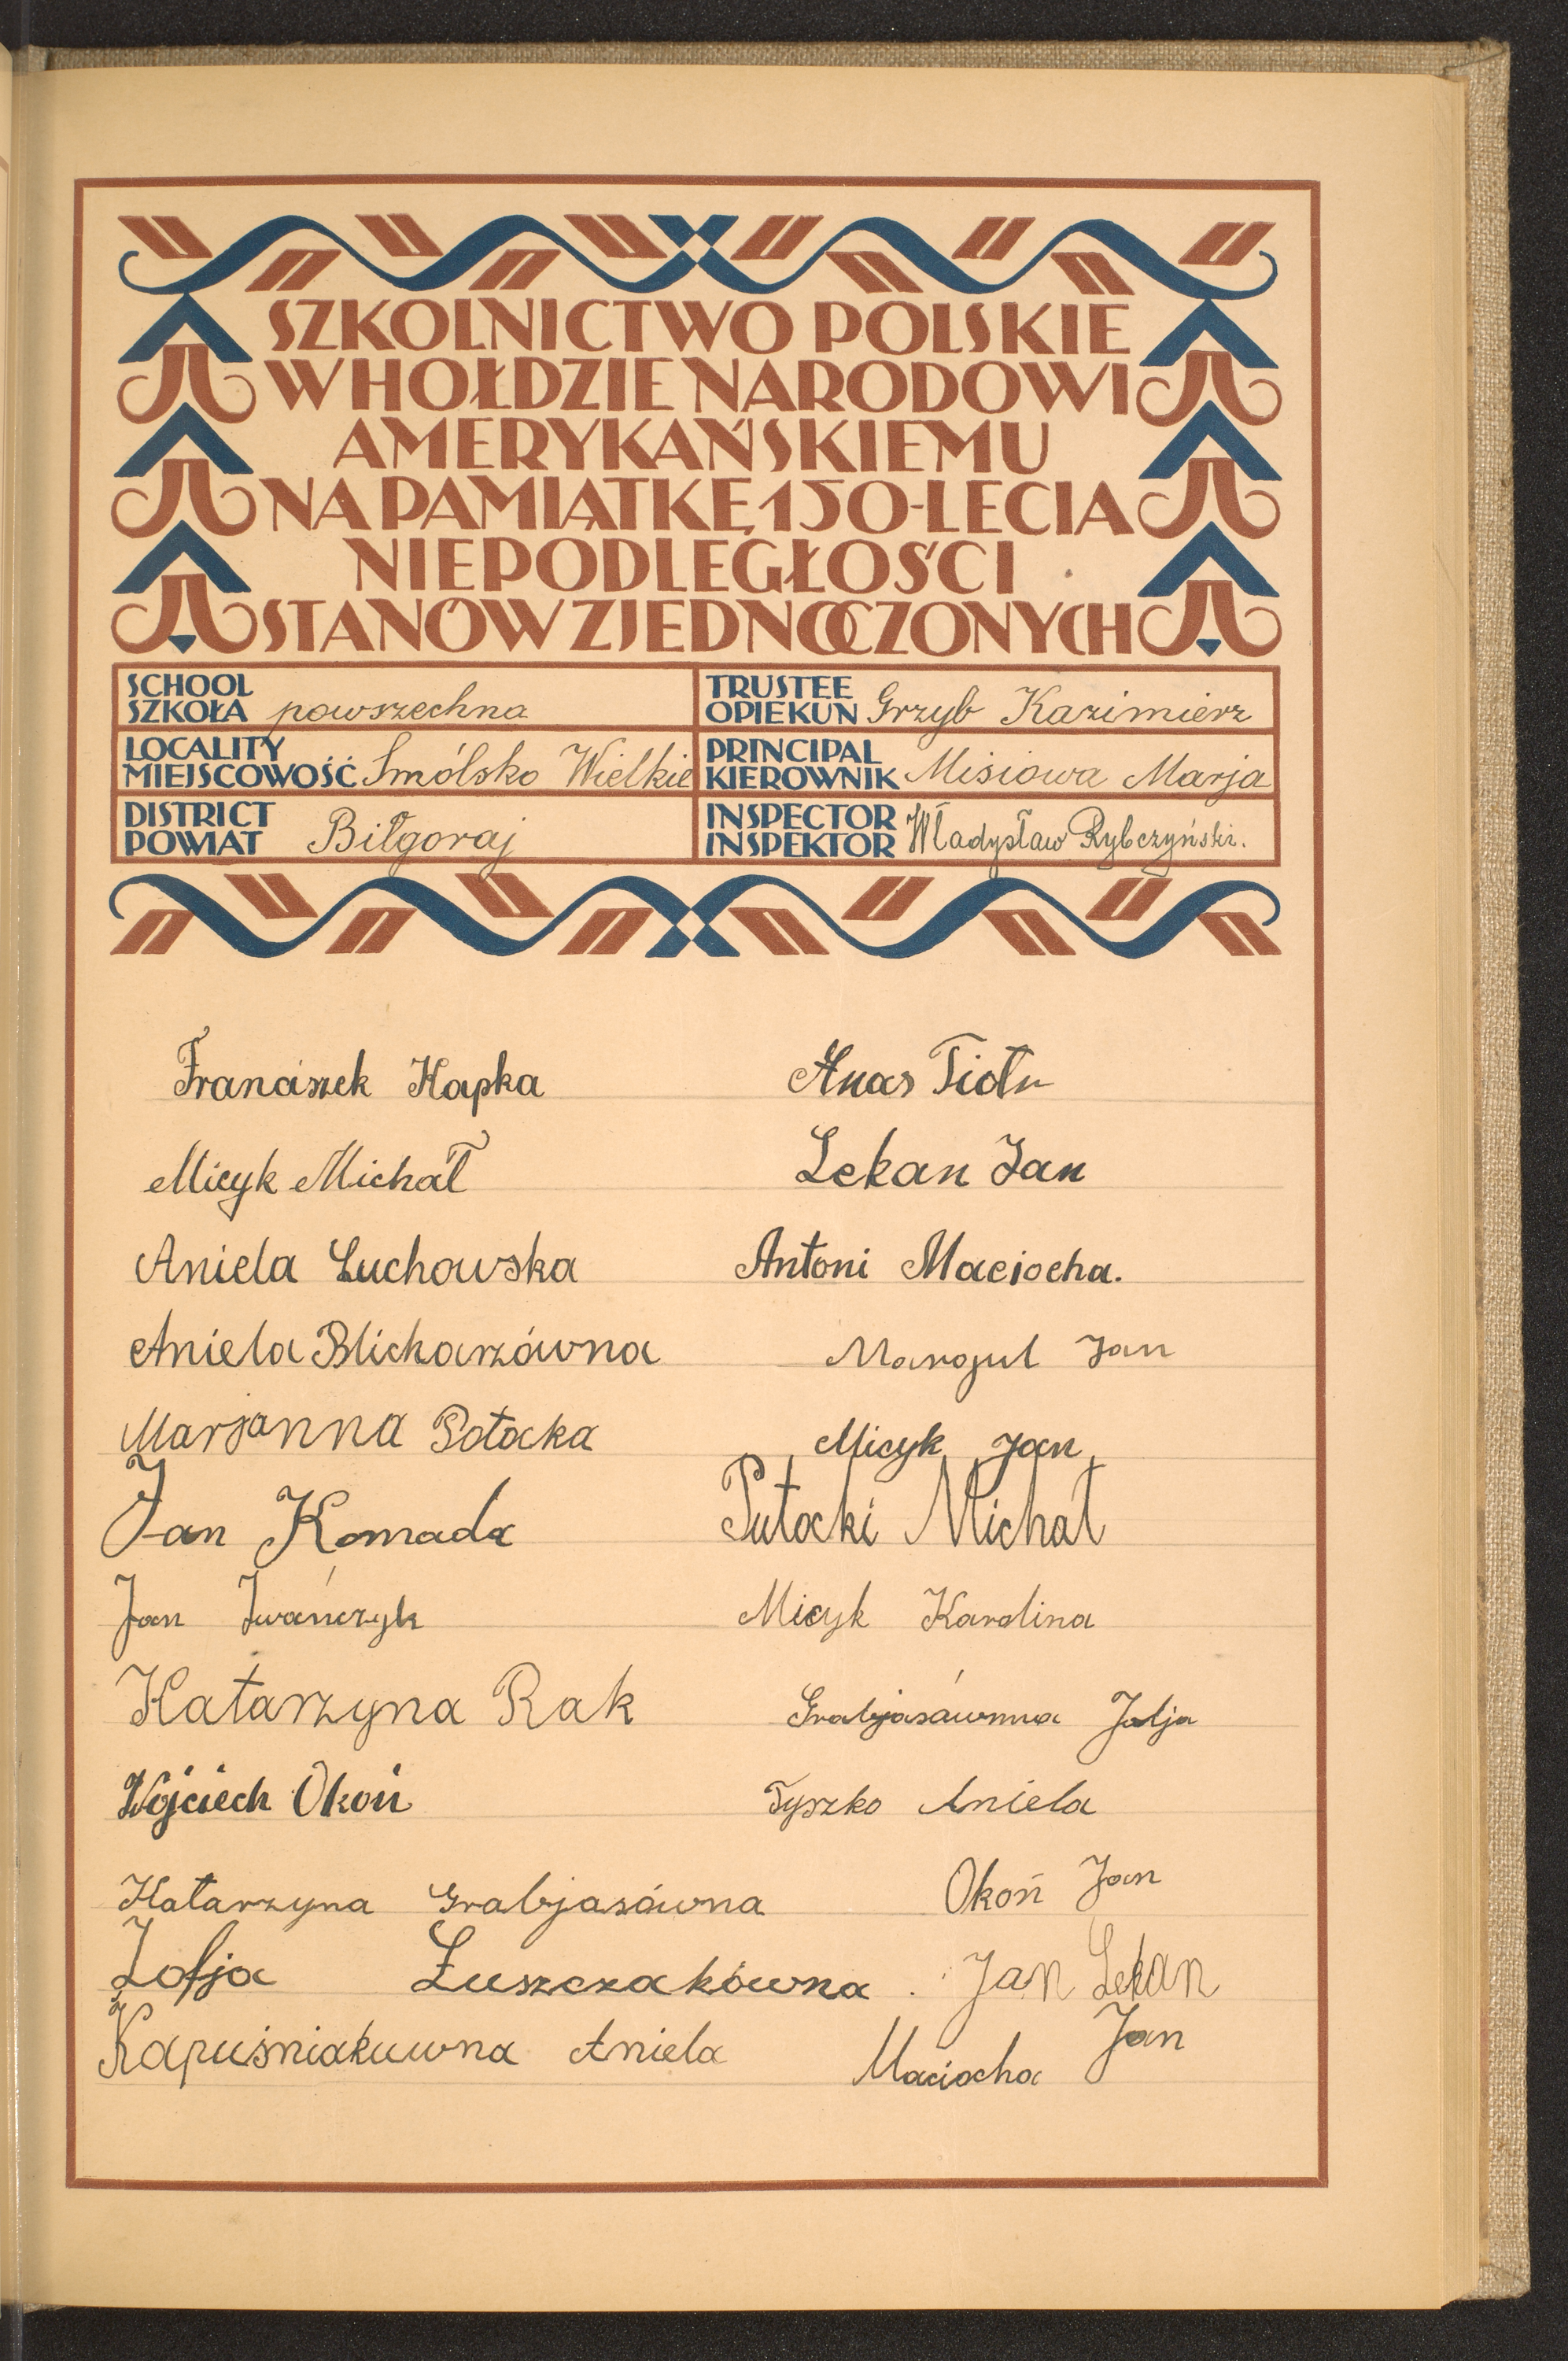 SZKOLNICTWO POLSKIE
W HOŁDZIE NARODOWI
AMERYKAŃSKIEMU
NA PAMIĄTKĘ 150-LECIA
NIEPODLEGŁOŚCI
STANÓW ZJEDNOCZONYCH
SCHOOL
SZKOŁA powszechna
TRUSTEE
OPIEKUN Grzyb Kazimierz
LOCALITY
MIEJSCOWOŚĆ Smólsko Wielkie
PRINCIPAL
KIEROWNIK Misiowa Marja
DISTRICT
POWIAT Biłgoraj
INSPECTOR
INSPEKTOR Władysław Rybczyński.
Franciszek Kapka
Micyk Michał
Aniela Łuchowska
Aniela Blicharzówna
Marjanna Potocka
Jan Komada
Jan Iwańczyk
Katarzyna Rak
Wojciech Okoń
Katarzyna Grabjasówna
Zofja Łuszczakówna.
Kapuśniakuwna Aniela
Piotr
Lekan Jan
Antoni Maciocha.
Margul Jan
Micyk Jan
Putocki Michał
Micyk Karolina
Grabjasówmna Julja
Tyszko Aniela
Okoń Jan
Jan Lekan
Maciocha Jan